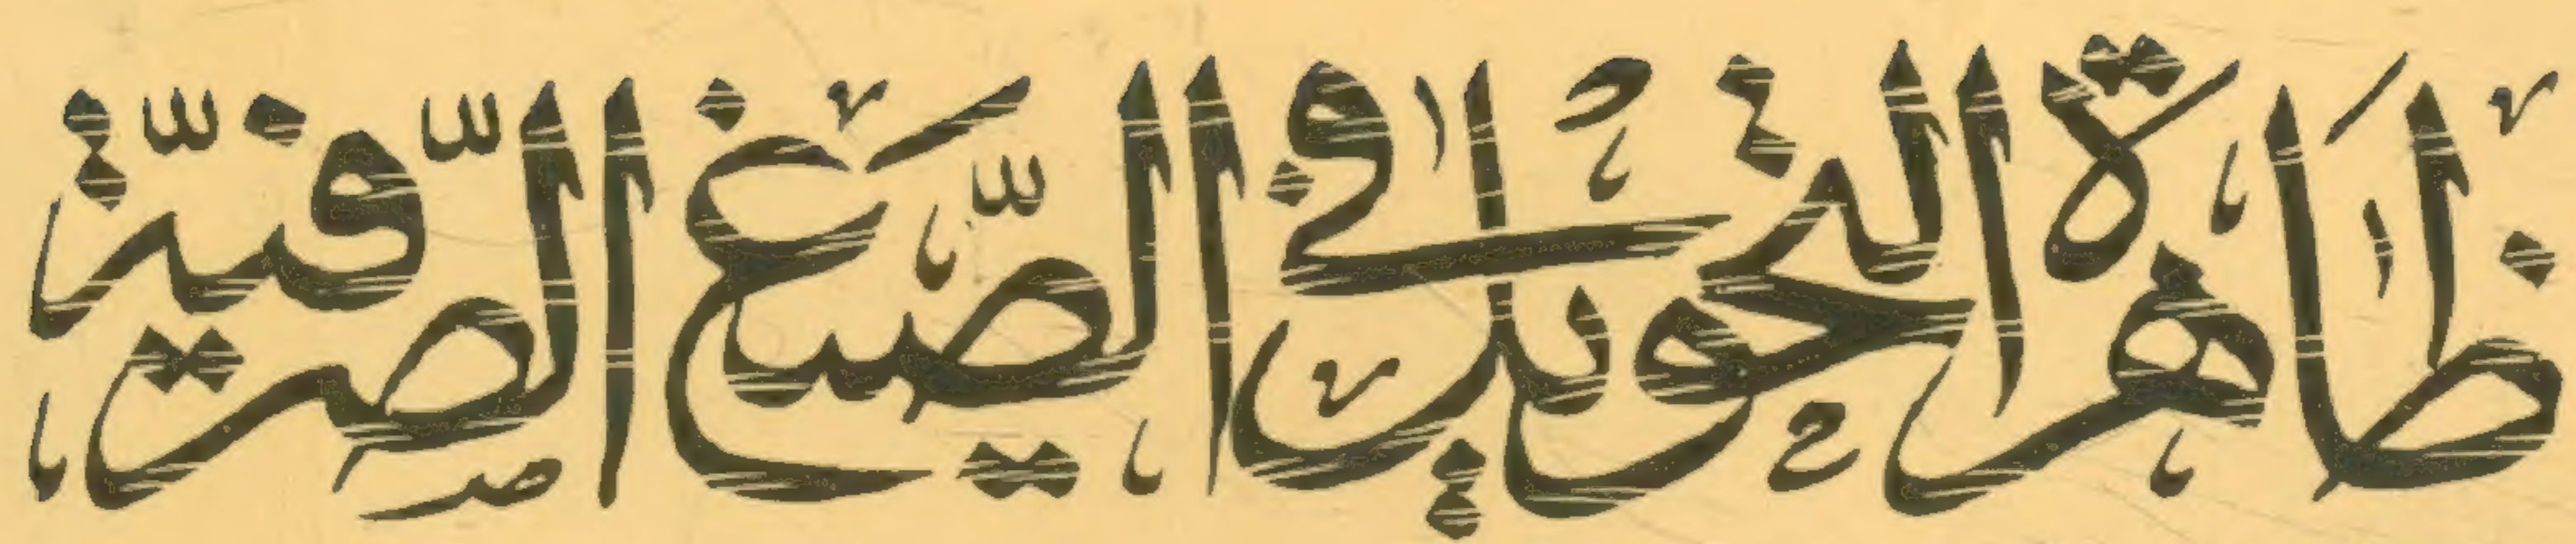 ظاهرة التحويل في الصيغ الصّرفيّة